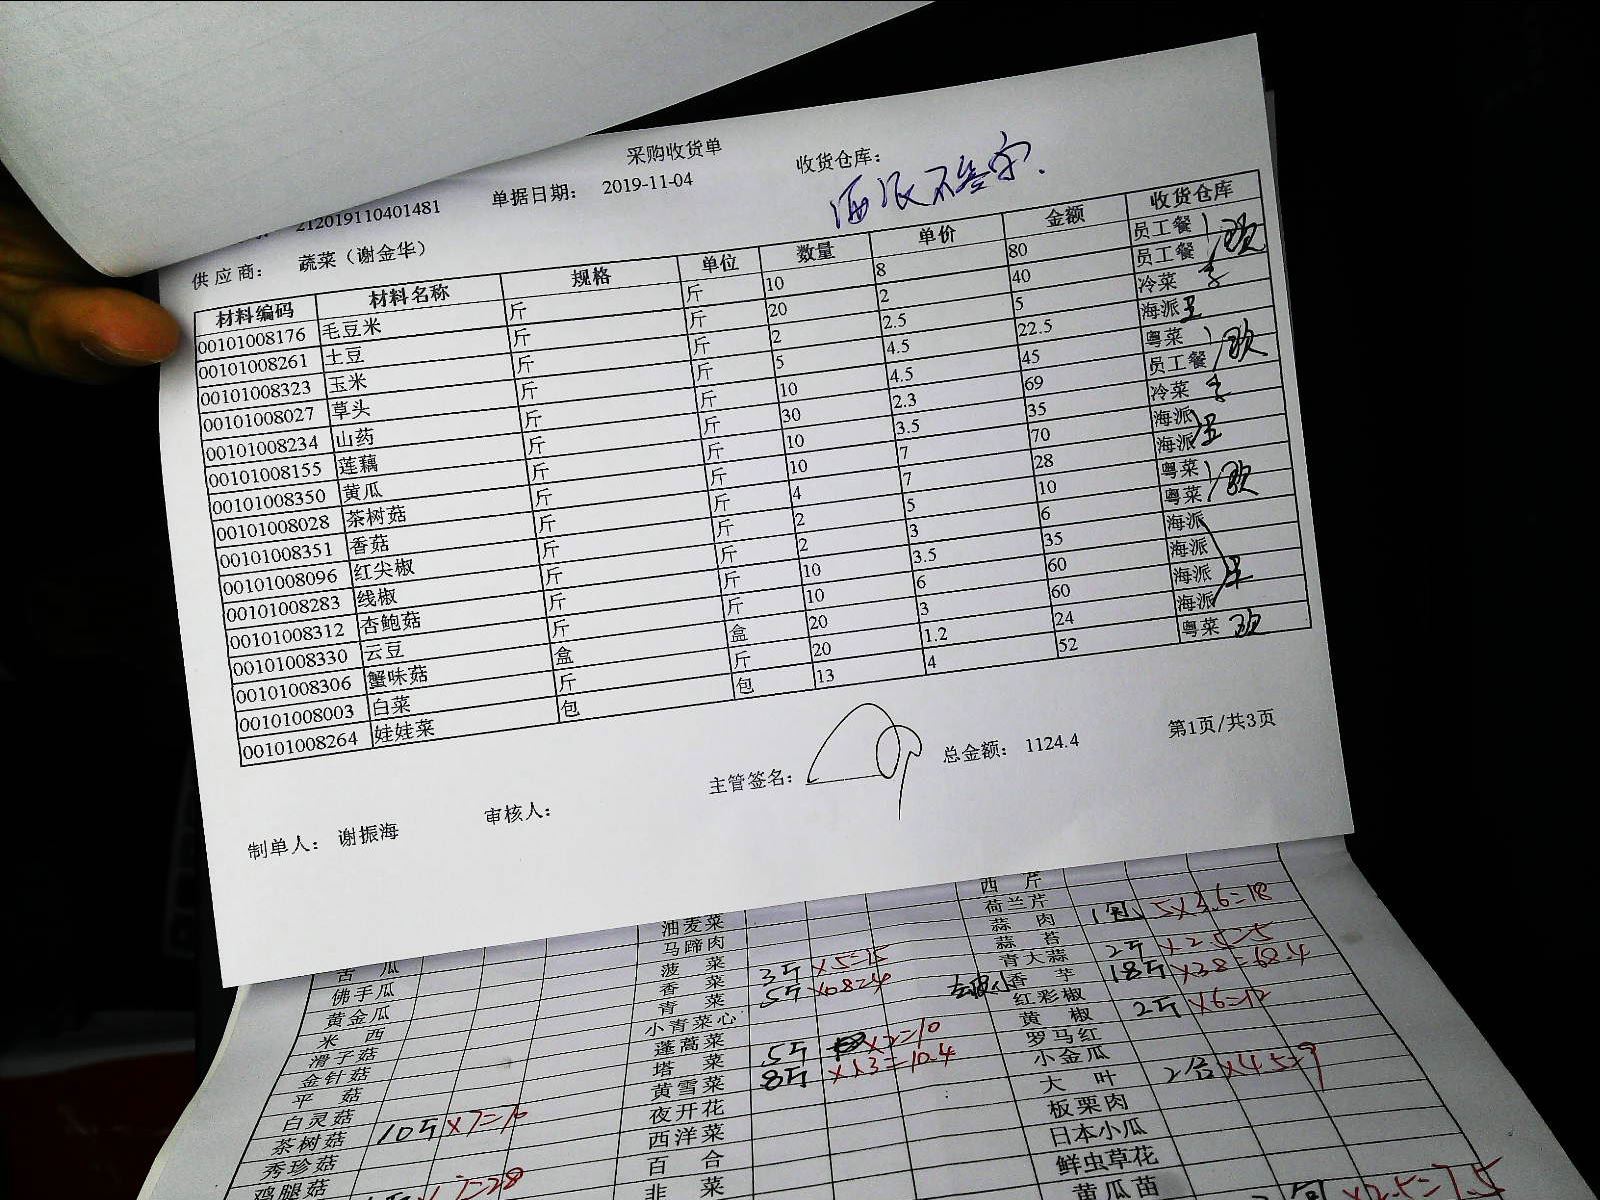 采购收货单
212019110401481 单据日期： 2019-11-04 收货仓库：
海派不签字.
供应商： 蔬菜（谢金华）
材料编码 材料名称 规格 单位 数量 单价 金额 收货仓库
00101008176 毛豆米 斤 斤 10 8 80 员工餐
00101008261 土豆 斤 斤 20 2 40 员工餐
00101008323 玉米 斤 斤 2 2.5 5 冷菜
00101008027 草头 斤 斤 5 4.5 22.5 海派
00101008234 山药 斤 斤 10 4.5 45 粤菜
00101008155 莲藕 斤 斤 30 2.3 69 员工餐
00101008350 黄瓜 斤 斤 10 3.5 35 冷菜
00101008028 茶树菇 斤 斤 10 7 70 海派
00101008351 香菇 斤 斤 4 7 28 海派
00101008096 红尖椒 斤 斤 2 5 10 粤菜
00101008283 线椒 斤 斤 2 3 6 粤菜
00101008312 杏鲍菇 斤 斤 10 3.5 35 海派
00101008330 云豆 斤 斤 10 6 60 海派
00101008306 蟹味菇 盒 盒 20 3 60 海派
00101008003 白菜 斤 斤 20 1.2 24 海派
00101008264 娃娃菜 包 包 13 4 52 粤菜
主管签名： 总金额： 1124.4 第1页/共3页
制单人： 谢振海 审核人：
西芹
油麦菜 荷兰芹
马蹄肉 蒜肉 1包 5×3.6=18
苦瓜 菠菜 3斤×5=15 蒜苔
佛手瓜 香菜 5斤×0.8=4 青大蒜 2斤×2.5=5
黄金瓜 青菜 香芋 18斤×3.8=68.4
米西 小青菜心 红彩椒
滑子菇 蓬蒿菜 5斤×2=10 黄椒 2斤×6=12
金针菇 塔菜 8斤×1.3=10.4 罗马红
平菇 黄雪菜 小金瓜
白灵菇 夜开花 大叶 2合×4.5=9
茶树菇 10斤×7=70 西洋菜 板栗肉
秀珍菇 百合 日本小瓜
鸡腿菇 韭菜 鲜虫草花
黄瓜苗